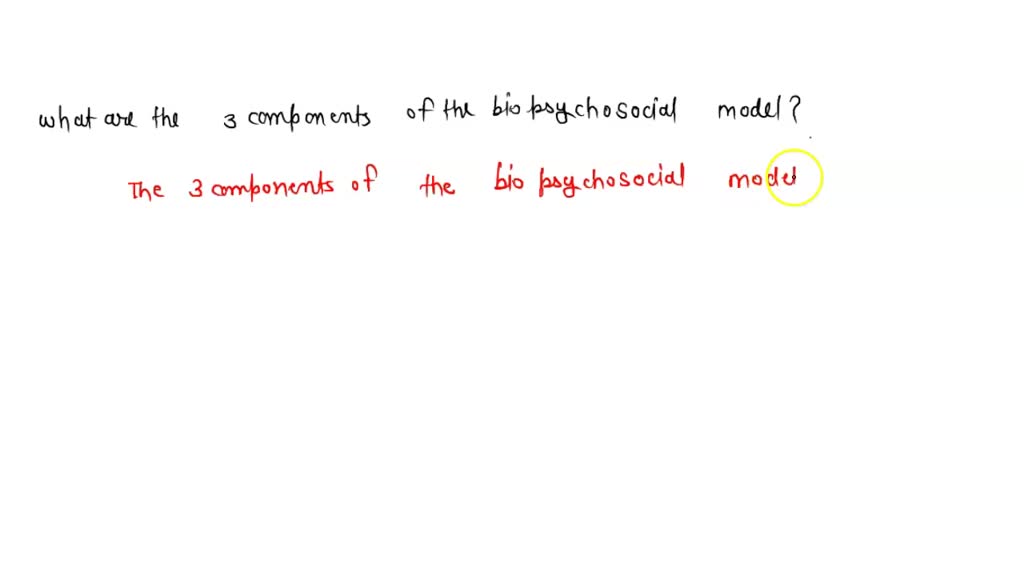 what are the 3 components of the biopsychosocial model?
The 3 components of the bio psychosocial model